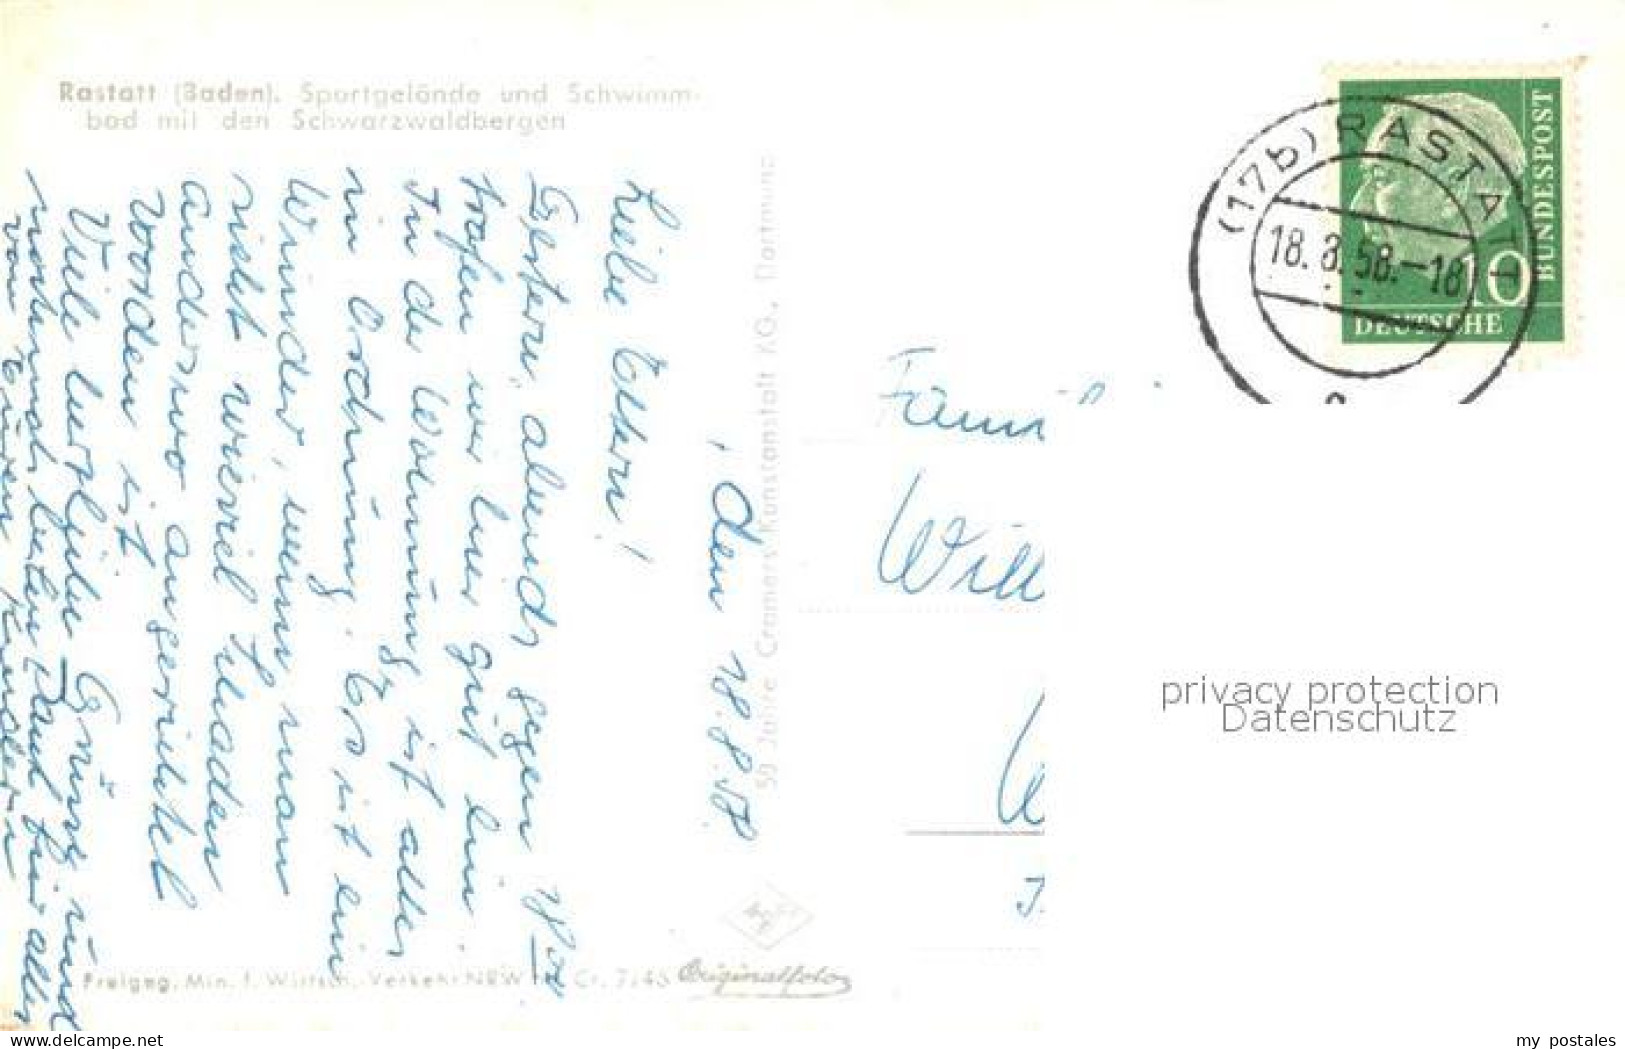 Rastatt (Baden). Sportgelände und Schwimm-
bad mit den Schwarzwaldbergen
, den 18.8.58.
Liebe Eltern!
Gestern, abends gegen 18
trafen wir hier gut ein.
In der Wohnung ist alles
in Ordnung. Es ist kein
Wunder, wenn man
sieht wieviel Schaden
anderswo angerichtet
worden ist.
Viele herzliche Grüsse und
nochmals besten Dank für alles
von Euren Kindern
50 Jahre Cramers Kunstanstalt KG., Dortmund
Freigeg. Min. f. Wirtsch. Verkehr NRW
Originalfoto
(17b) RASTATT
18.8.58.-18
DEUTSCHE
BUNDESPOST
10
Fami
Will
privacy protection
Datenschutz
delcampe.net
my_postales